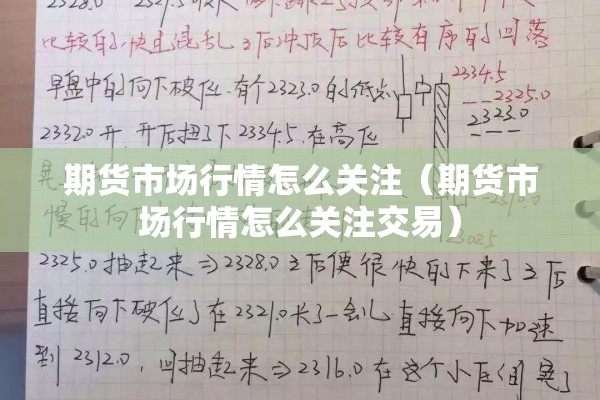 2328.0
比较的快且混乱之后冲顶后比较有序的回落
早盘中的向下破位.有个2323.0的低点
2334.5
2325.0
2323.0
2332.0开,开后扭了下2334.5.在高位
期货市场行情怎么关注（期货市
场行情怎么关注交易）
慢的向下
2308.5
2325.0抽起来⇒2328.0之后便很快的下来了之后
直接向下破位了在2321.0长了一会儿直接向下加速
到2312.0,回抽起来⇒2316.0在这个小区间晃了